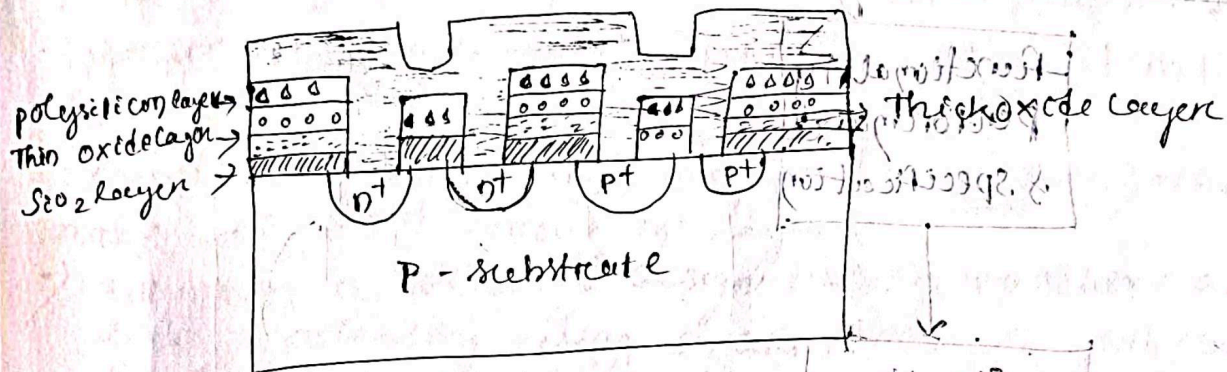 polysilicon layer
Thin oxide layer
SiO2 layer
Thick oxide layer
n+
n+
p+
p+
P - substrate